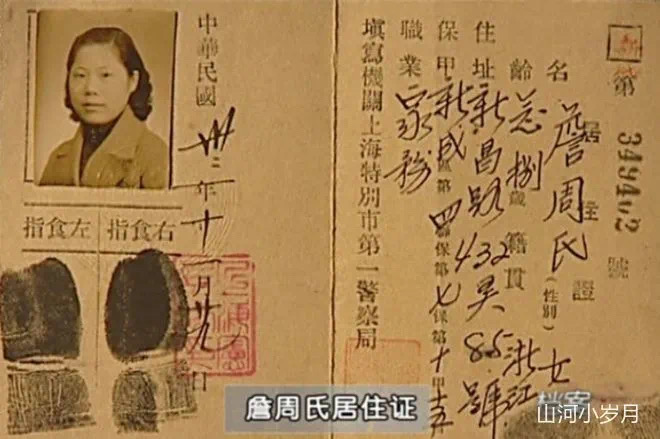 第 號
居住證
名 詹周氏 (性別) 女
齡 念捌 歲 籍貫 浙江
住址 新昌路432弄85號
保甲 新成區第四聯保第七保第十甲
職業 家務
填寫機關上海特別市第一警察局
中華民國卅二年十一月 日
右食指
左食指
詹周氏居住证
档案
山河小岁月